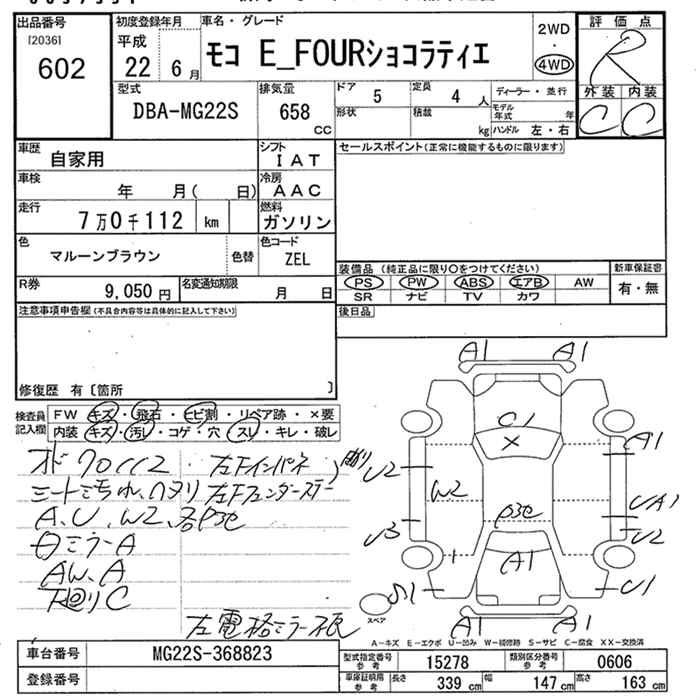 出品番号
[2036]
602
初度登録年月
平成
22 6月
車名・グレード
モコ E_FOURショコラティエ
2WD
・
4WD
評価点
R
外装 内装
C C
型式
DBA-MG22S
排気量
658
cc
ドア
5
定員
4人
ディーラー・並行
形状
積載
kg
モデル年式 年
ハンドル 左・右
車歴
自家用
シフト
IAT
セールスポイント(正常に機能するものに限ります)
車検
年 月( 日)
冷房
AAC
走行
7万0千112 km
燃料
ガソリン
色
マルーンブラウン
色替
色コード
ZEL
R券
9,050円
名変通知期限
月 日
装備品(純正品に限り〇をつけてください)
新車保証書
PS PW ABS エアB AW
有・無
SR ナビ TV カワ
注意事項申告欄(不具合内容等は具体的に記入して下さい)
後日品
修復歴 有〔箇所 〕
検査員
記入欄
FW キズ・飛石・ヒビ割・リペア跡・×要
内装 キズ・汚レ・コゲ・穴・スレ・キレ・破レ
A1 A1
C1
×
A1
U2
W2
P3e
UA1
U3
U2
A1
S1
U1
A1 A1
左Fインパネ
A、U、W2、
ミラーA
AW、A
下廻りC
左電格ミラー
スペア
A-キズ E-エクボ U-凹み W-補修跡 S-サビ C-腐食 XX-交換済
車台番号
MG22S-368823
登録番号
型式指定番号
参考
15278
類別区分番号
参考
0606
車庫証明用
参考
長さ 339cm
幅 147cm
高さ 163cm